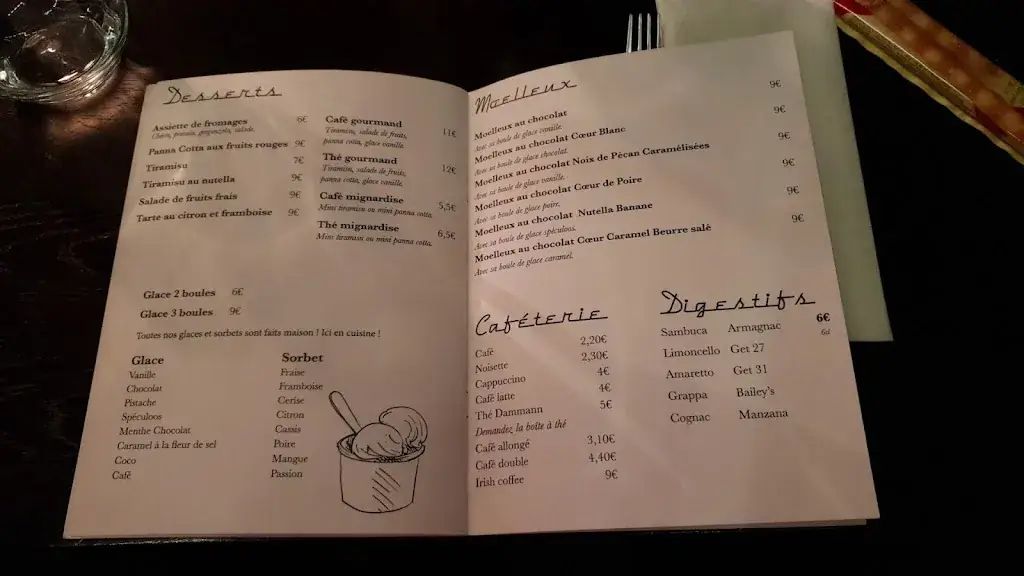 Desserts
Assiette de fromages 6€
Chèvre, pecorino, gorgonzola, salade.
Panna Cotta aux fruits rouges 9€
Tiramisu 7€
Tiramisu au nutella 9€
Salade de fruits frais 9€
Tarte au citron et framboise 9€
Café gourmand 11€
Tiramisu, salade de fruits,
panna cotta, glace vanille.
Thé gourmand 12€
Tiramisu, salade de fruits,
panna cotta, glace vanille.
Café mignardise 5,5€
Mini tiramisu ou mini panna cotta.
Thé mignardise 6,5€
Mini tiramisu ou mini panna cotta.
Glace 2 boules 6€
Glace 3 boules 9€
Toutes nos glaces et sorbets sont faits maison ! Ici en cuisine !
Glace
Vanille
Chocolat
Pistache
Spéculoos
Menthe Chocolat
Caramel à la fleur de sel
Coco
Café
Sorbet
Fraise
Framboise
Cerise
Citron
Cassis
Poire
Mangue
Passion
Moelleux
Moelleux au chocolat 9€
Avec sa boule de glace vanille.
Moelleux au chocolat Cœur Blanc 9€
Avec sa boule de glace chocolat.
Moelleux au chocolat Noix de Pécan Caramélisées 9€
Avec sa boule de glace vanille.
Moelleux au chocolat Cœur de Poire 9€
Avec sa boule de glace poire.
Moelleux au chocolat Nutella Banane 9€
Avec sa boule de glace spéculoos.
Moelleux au chocolat Cœur Caramel Beurre salé 9€
Avec sa boule de glace caramel.
Caféterie
Café 2,20€
Noisette 2,30€
Cappuccino 4€
Café latte 4€
Thé Dammann 5€
Demandez la boîte à thé
Café allongé 3,10€
Café double 4,40€
Irish coffee 9€
Digestifs
6€
6cl
Sambuca Armagnac
Limoncello Get 27
Amaretto Get 31
Grappa Bailey's
Cognac Manzana